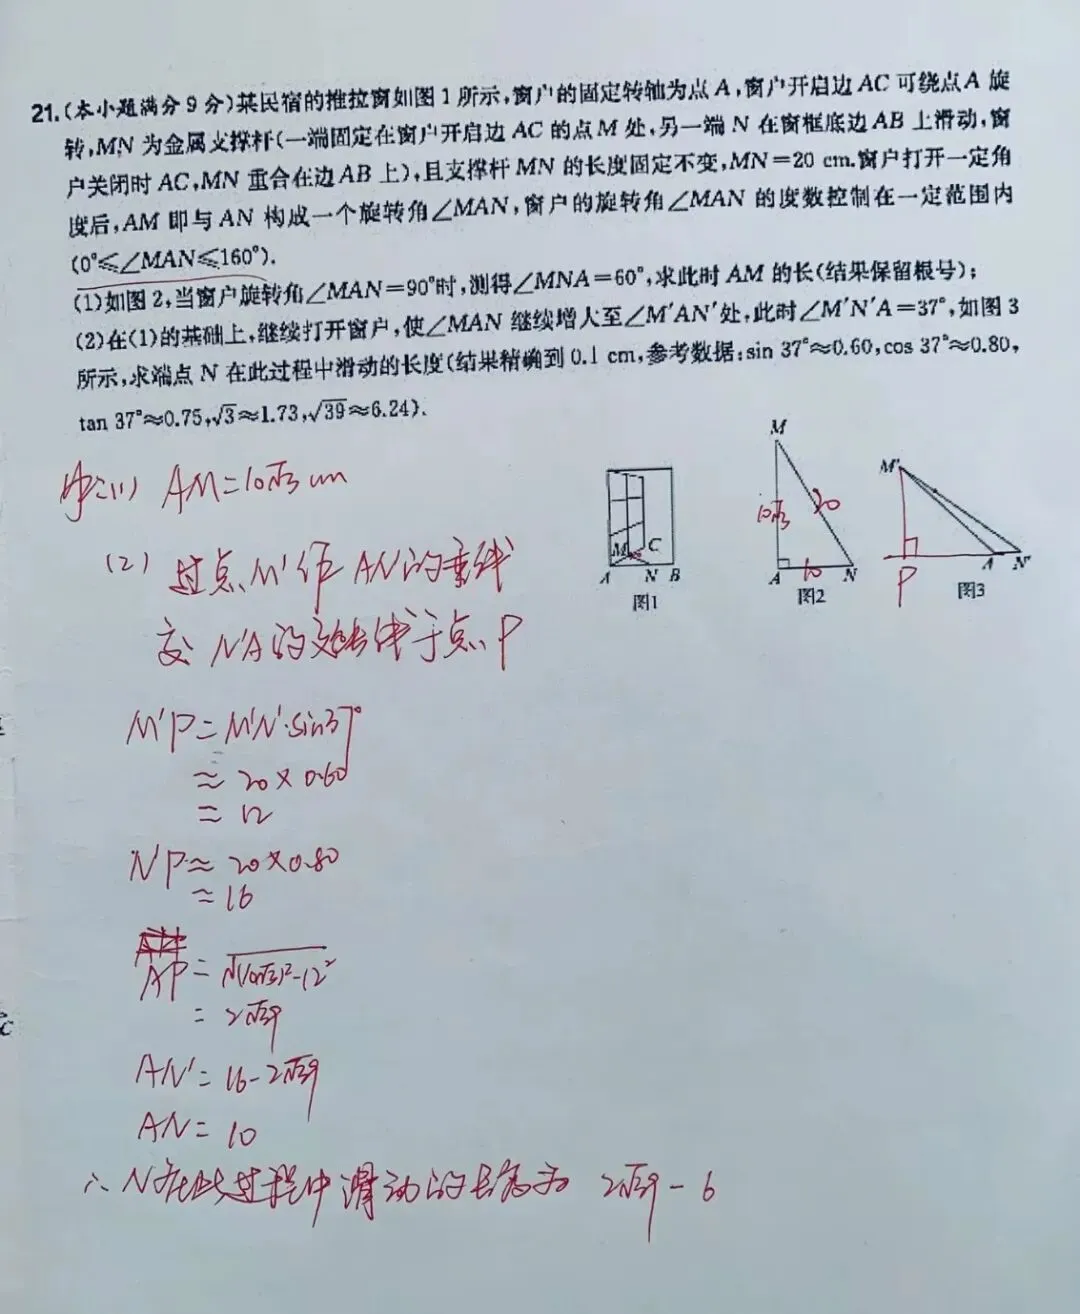 21.(本小题满分9分)某民宿的推拉窗如图1所示,窗户的固定转轴为点A,窗户开启边AC可绕点A旋
转,MN为金属支撑杆(一端固定在窗户开启边AC的点M处,另一端N在窗框底边AB上滑动,窗
户关闭时AC,MN重合在边AB上),且支撑杆MN的长度固定不变,MN=20 cm.窗户打开一定角
度后,AM即与AN构成一个旋转角∠MAN,窗户的旋转角∠MAN的度数控制在一定范围内
(0°≤∠MAN≤160°).
(1)如图2,当窗户旋转角∠MAN=90°时,测得∠MNA=60°,求此时AM的长(结果保留根号);
(2)在(1)的基础上,继续打开窗户,使∠MAN继续增大至∠M'AN'处,此时∠M'N'A=37°,如图3
所示,求端点N在此过程中滑动的长度(结果精确到0.1 cm,参考数据:sin 37°≈0.60,cos 37°≈0.80,
tan 37°≈0.75,√3≈1.73,√39≈6.24).
M
M'
10√3
20
M
C
A
N
B
A
10
N
P
A
N'
图1
图2
图3
(1) AM=10√3 cm
(2) 过点M'作AN的垂线
交N'A的延长线于点P
M'P=M'N'·sin37°
≈20×0.60
=12
N'P≈20×0.80
≈16
AP=√(10√3)²-12²
=2√39
AN'=16-2√39
AN=10
∴N在此过程中滑动的长度为 2√39-6